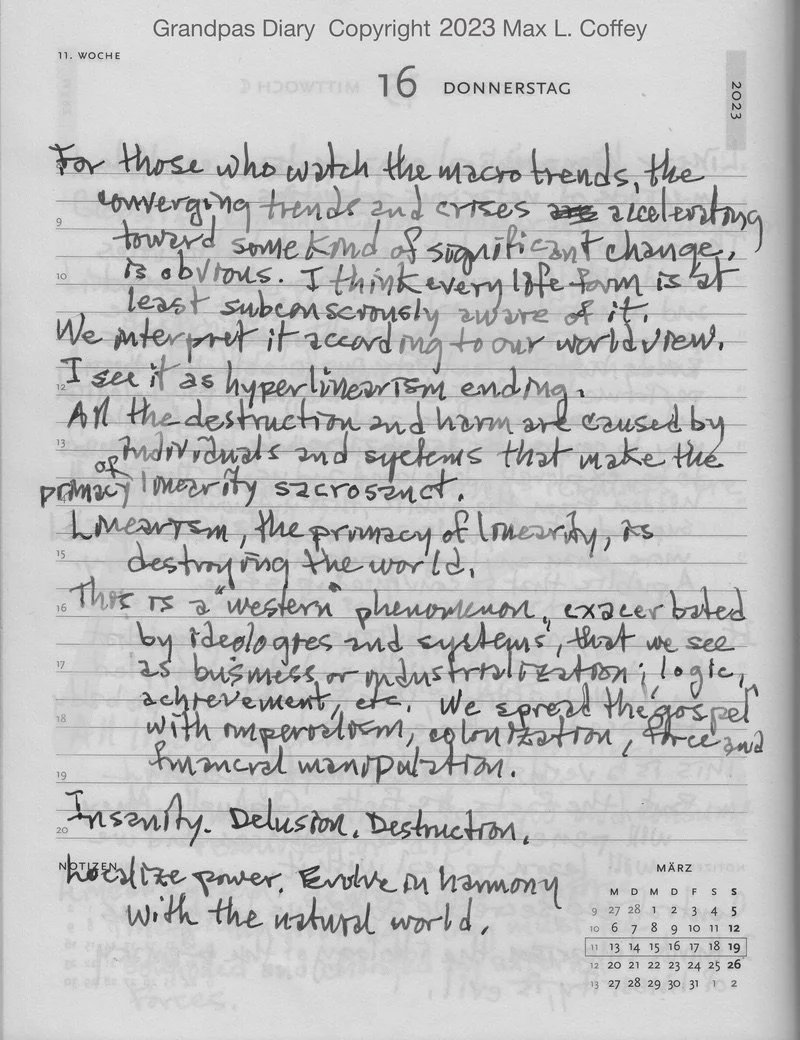 Grandpas Diary Copyright 2023 Max L. Coffey
11. WOCHE
16 DONNERSTAG
2023
For those who watch the macro trends, the
converging trends and crises are accelerating
9
toward some kind of significant change,
10
is obvious. I think every life form is at
least subconsciously aware of it.
We interpret it according to our worldview.
12
I see it as hyperlinearism ending.
All the destruction and harm are caused by
13
individuals and systems that make the
of
primacy linearity sacrosanct.
Linearism, the primacy of linearity, is
15
destroying the world.
16
This is a "western" phenomenon, exacerbated
by ideologies and systems, that we see
17
as business, or industrialization, logic,
achievement, etc. We spread the "gospel"
18
with imperialism, colonization, force and
financial manipulation.
19
Insanity. Delusion. Destruction.
20
NOTIZEN
Localize power. Evolve in harmony
with the natural world.
MÄRZ
M D M D F S S
9 27 28 1 2 3 4 5
10 6 7 8 9 10 11 12
11 13 14 15 16 17 18 19
12 20 21 22 23 24 25 26
13 27 28 29 30 31 1 2